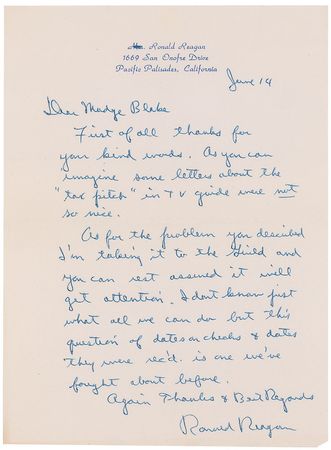 Mrs. Ronald Reagan
1669 San Onofre Drive
Pacific Palisades, California
June 14
Dear Madge Blake
First of all thanks for
your kind words. As you can
imagine some letters about the
"tax pitch" in TV guide were not
so nice.
As for the problem you described
I'm taking it to the Guild and
you can rest assured it will
get attention. I don't know just
what all we can do but this
question of dates on checks & dates
they were rec'd. is one we've
fought about before.
Again Thanks & Best Regards
Ronald Reagan